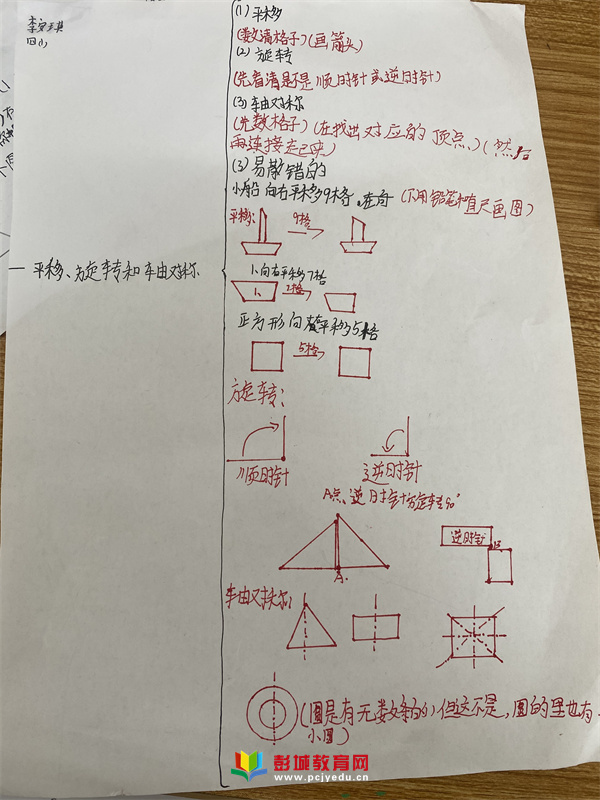 四(1)
一 平移、旋转和车由对称
(1) 平移
(数清格子)(画箭头)
(2) 旋转
(先看清是不是顺时针或逆时针)
(3) 车由对称
(先数格子)(在找出对应的顶点)(然后
再连接起来)
(3) 易散错的
小船向右平移9格。
(不用铅笔和直尺画图)
平移:
9格
1.向右平移7格
1.
正方形向
平移5格
5格
旋转:
顺时针
逆时针
A点逆时针方旋转90°
A.
逆时针
B
车由对称:
(圆是有无数条的)但这不是,圆的里也有一
小圆)
彭城教育网
www.pcjyedu.cn